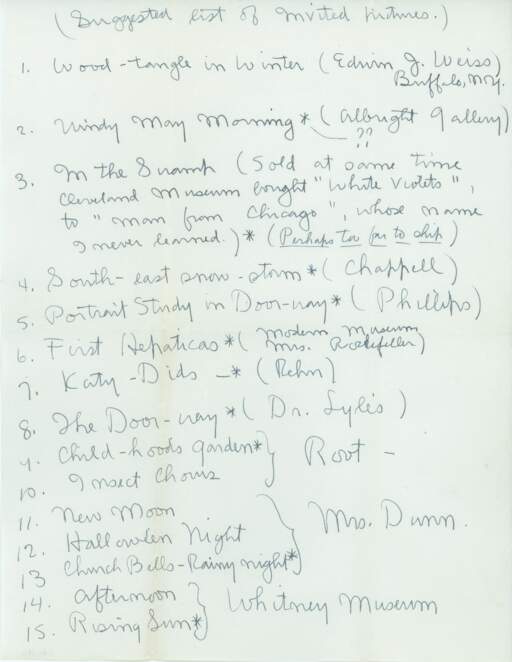 (Suggested list of Invited Pictures.)
1. Wood-tangle in Winter (Edwin J. Weiss)
Buffalo, N.Y.
2. Windy May Morning* (Albright Gallery)
??
3. In the Swamp (Sold at same time
Cleveland Museum bought "White Violets",
to "man from Chicago", whose name
I never learned.)* (Perhaps too far to ship)
4. South-east snow-storm* (Chappell)
5. Portrait Study in Door-way* (Phillips)
6. First Hepaticas* (Modern Museum
Mrs. Rockefeller)
7. Katy-Dids -* (Rehn)
8. The Door-way* (Dr. Lyles)
9. Child-hoods Garden*} Root -
10. Insect Chorus
11. New Moon
12. Hallowe'en Night } Mrs. Dunn.
13 Church Bells-Rainy night*
14. Afternoon } Whitney Museum
15. Rising Sun*